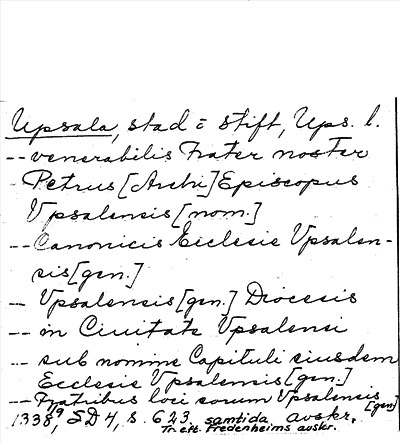 Upsala, stad o stift, Ups. l.
-- venerabilis Frater noster
Petrus [Archi]Episcopus
Vpsalensis [nom.]
-- Canonicis Ecclesie Vpsalen-
sis [gen.]
-- Vpsalensis [gen.] Diocesis
-- in Ciuitate Vpsalensi
-- sub nomine Capituli eiusdem
Ecclesie Vpsalensis [gen.]
-- Fratribus loci eorum Vpsalensis [gen]
1338, SD 4, s. 623, samtida avskr.
Tr. eft. Fredenheims avskr.